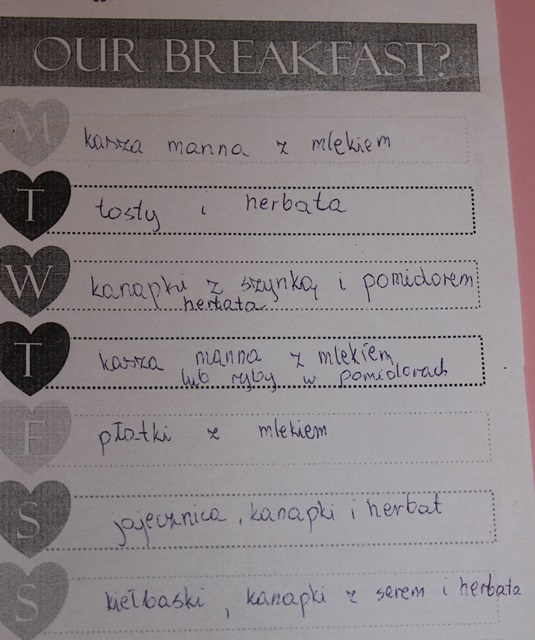 OUR BREAKFAST?
M kasza manna z mlekiem
T tosty i herbata
W kanapki z szynką i pomidorem
herbata
T kasza manna z mlekiem
lub ryby w pomidorach
F płatki z mlekiem
S jajecznica, kanapki i herbat
S kiełbaski, kanapki z serem i herbata